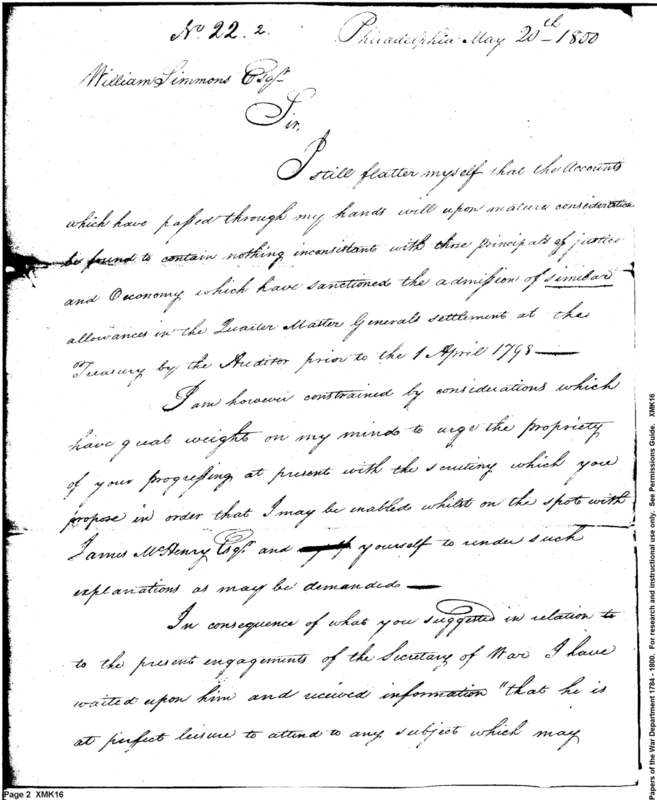 No. 22. 2.
Philadelphia May 20th 1800
William Simmons Esqr.
Sir,
I still flatter myself that the Accounts
which have passed through my hands will upon mature consideration
be found to contain nothing inconsistant with those principals of justice
and Oeconomy which have sanctioned the admission of similar
allowances in the Quarter Master Generals settlement at the
Treasury by the Auditor prior to the 1 April 1798 —
I am however constrained by considerations which
have great weight on my mind to urge the propriety
of your progressing at present with the scrutiny which you
propose in order that I may be enabled whilst on the spot with
James McHenry Esqr. and yourself to render such
explanations as may be demanded —
In consequence of what you suggested in relation to
to the present engagements of the Secretary of War I have
waited upon him and received information "that he is
at perfect leisure to attend to any subject which may
Page 2 XMK16
Papers of the War Department 1784 - 1800. For research and instructional use only. See Permissions Guide. XMK16